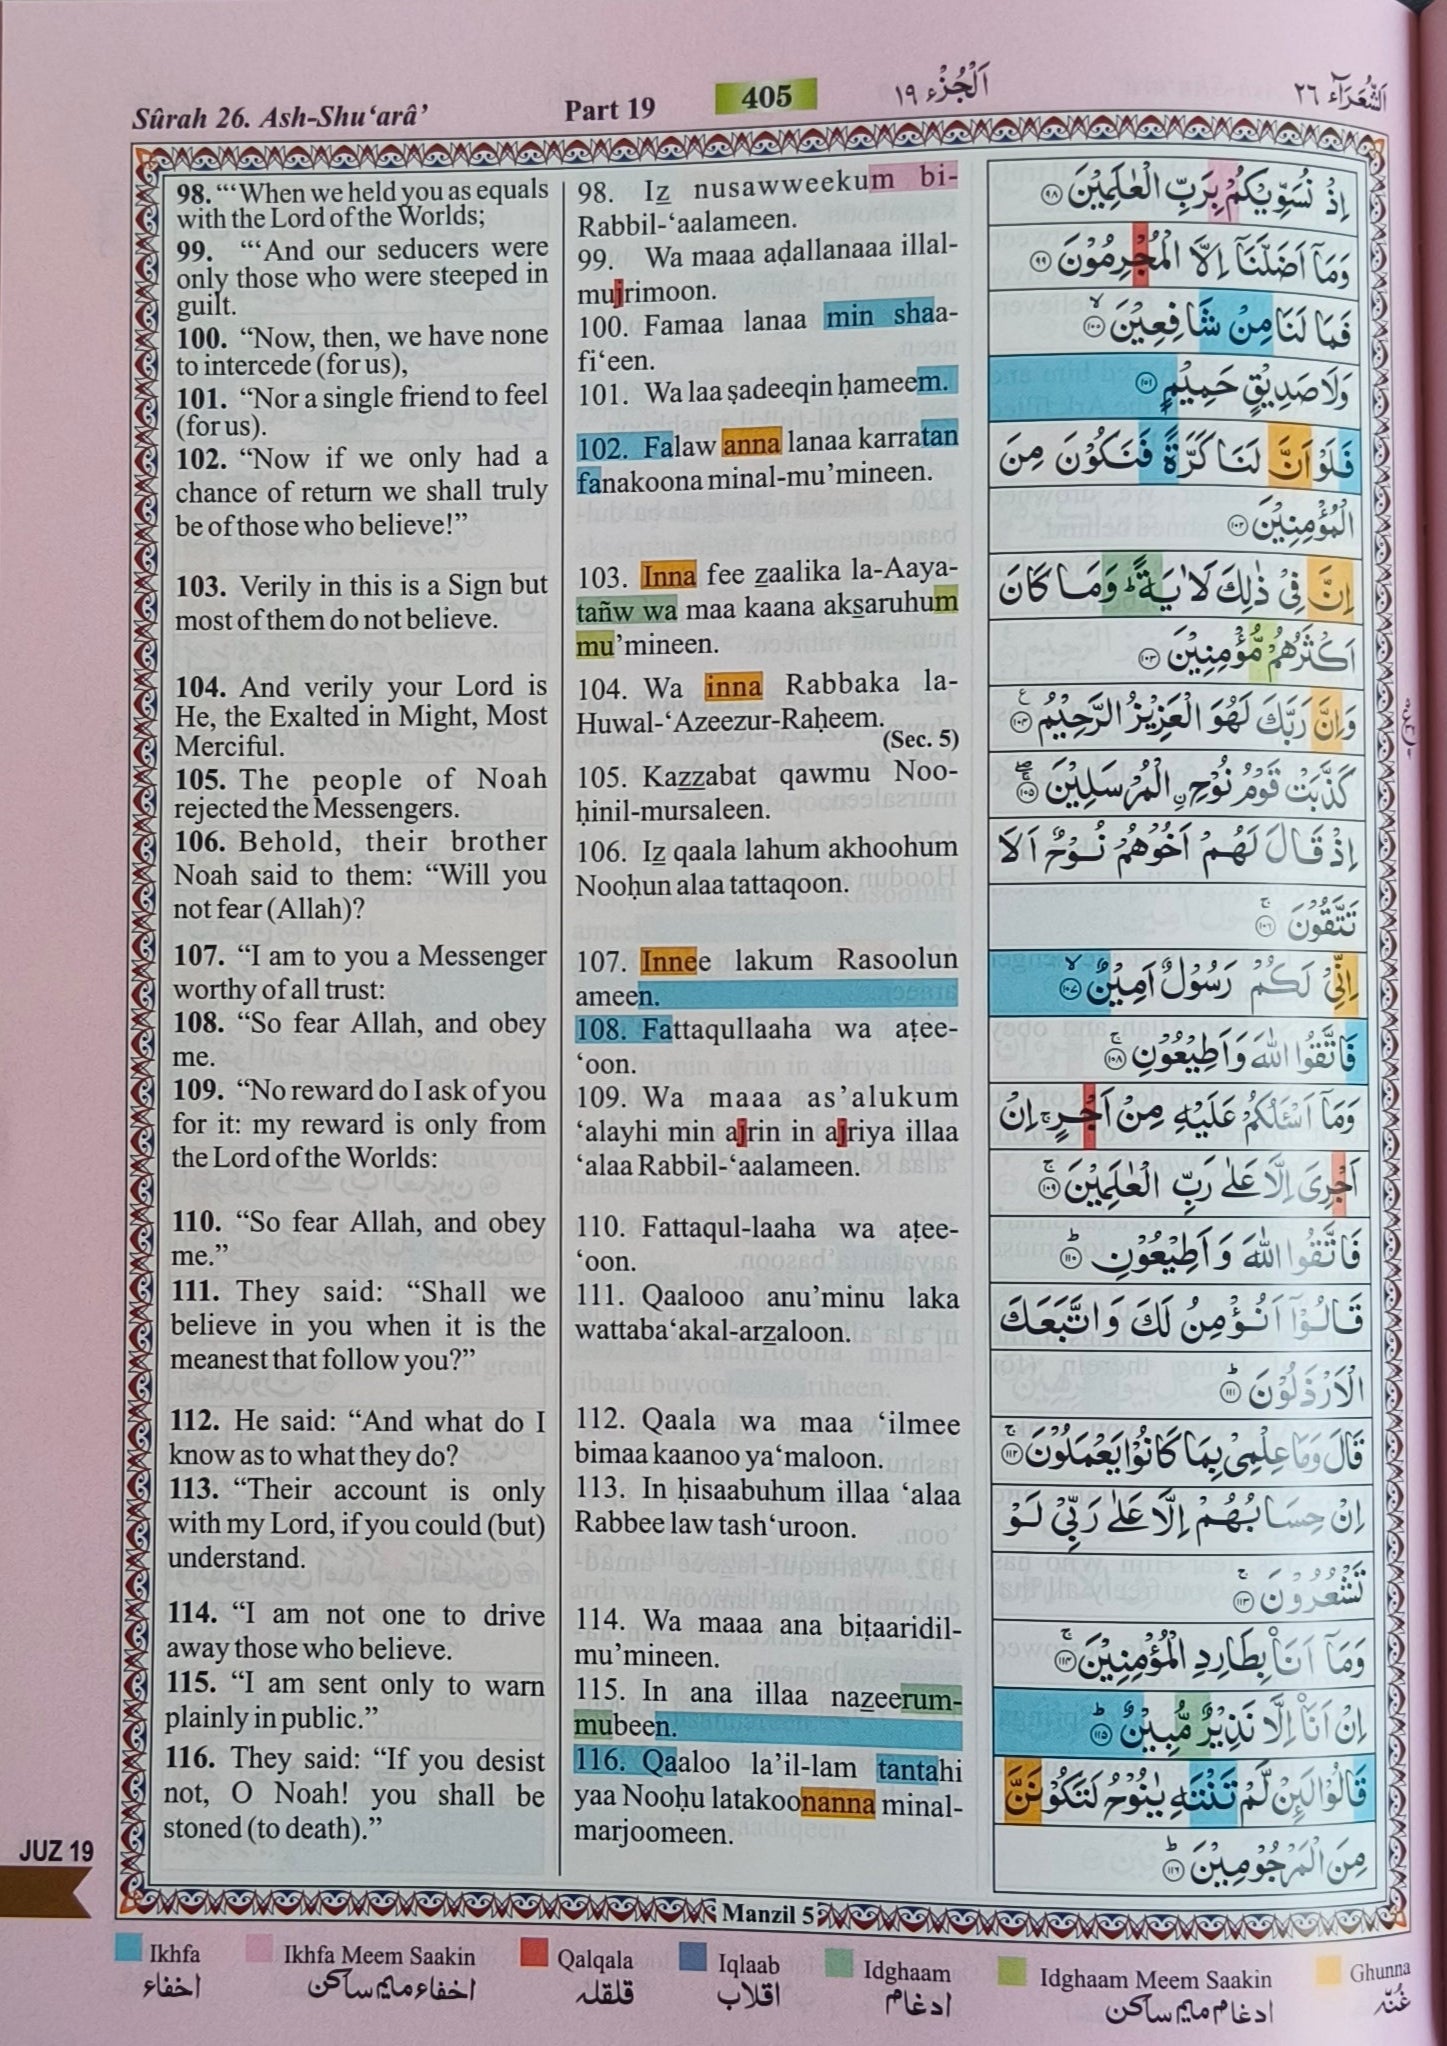 Sûrah 26. Ash-Shu‘arâ’
Part 19
405
اَلْجُزْء ١٩
اَلشُّعَرَآء ٢٦
98. “‘When we held you as equals
with the Lord of the Worlds;
99. “‘And our seducers were
only those who were steeped in
guilt.
100. “Now, then, we have none
to intercede (for us),
101. “Nor a single friend to feel
(for us).
102. “Now if we only had a
chance of return we shall truly
be of those who believe!”
103. Verily in this is a Sign but
most of them do not believe.
104. And verily your Lord is
He, the Exalted in Might, Most
Merciful.
105. The people of Noah
rejected the Messengers.
106. Behold, their brother
Noah said to them: “Will you
not fear (Allah)?
107. “I am to you a Messenger
worthy of all trust:
108. “So fear Allah, and obey
me.
109. “No reward do I ask of you
for it: my reward is only from
the Lord of the Worlds:
110. “So fear Allah, and obey
me.”
111. They said: “Shall we
believe in you when it is the
meanest that follow you?”
112. He said: “And what do I
know as to what they do?
113. “Their account is only
with my Lord, if you could (but)
understand.
114. “I am not one to drive
away those who believe.
115. “I am sent only to warn
plainly in public.”
116. They said: “If you desist
not, O Noah! you shall be
stoned (to death).”
98. Iz nusawweekum bi-
Rabbil-‘aalameen.
99. Wa maaa aḍallanaaa illal-
mujrimoon.
100. Famaa lanaa min shaa-
fi‘een.
101. Wa laa ṣadeeqin ḥameem.
102. Falaw anna lanaa karratan
fanakoona minal-mu’mineen.
103. Inna fee zaalika la-Aaya-
tañw wa maa kaana aksaruhum
mu’mineen.
104. Wa inna Rabbaka la-
Huwal-‘Azeezur-Raḥeem.
(Sec. 5)
105. Kazzabat qawmu Noo-
ḥinil-mursaleen.
106. Iz qaala lahum akhoohum
Nooḥun alaa tattaqoon.
107. Innee lakum Rasoolun
ameen.
108. Fattaqullaaha wa aṭee-
‘oon.
109. Wa maaa as’alukum
‘alayhi min ajrin in ajriya illaa
‘alaa Rabbil-‘aalameen.
110. Fattaqul-laaha wa aṭee-
‘oon.
111. Qaalooo anu’minu laka
wattaba‘akal-arzaloon.
112. Qaala wa maa ‘ilmee
bimaa kaanoo ya‘maloon.
113. In ḥisaabuhum illaa ‘alaa
Rabbee law tash‘uroon.
114. Wa maaa ana biṭaaridil-
mu’mineen.
115. In ana illaa nazeerum-
mubeen.
116. Qaaloo la’il-lam tantahi
yaa Nooḥu latakoonanna minal-
marjoomeen.
اِذْ نُسَوِّيْكُمْ بِرَبِّ الْعٰلَمِيْنَ ۝٩٨
وَمَآ اَضَلَّنَآ اِلَّا الْمُجْرِمُوْنَ ۝٩٩
فَمَا لَنَا مِنْ شَافِعِيْنَ ۙ۝١٠٠
وَلَا صَدِيْقٍ حَمِيْمٍ ۝١٠١
فَلَوْ اَنَّ لَنَا كَرَّةً فَنَكُوْنَ مِنَ
الْمُؤْمِنِيْنَ ۝١٠٢
اِنَّ فِيْ ذٰلِكَ لَاٰيَةً ؕ وَمَا كَانَ
اَكْثَرُهُمْ مُّؤْمِنِيْنَ ۝١٠٣
وَاِنَّ رَبَّكَ لَهُوَ الْعَزِيْزُ الرَّحِيْمُ ۝١٠٤
كَذَّبَتْ قَوْمُ نُوْحِ ࣙالْمُرْسَلِيْنَ ۝١٠٥
اِذْ قَالَ لَهُمْ اَخُوْهُمْ نُوْحٌ اَلَا
تَتَّقُوْنَ ۚ۝١٠٦
اِنِّيْ لَكُمْ رَسُوْلٌ اَمِيْنٌ ۙ۝١٠٧
فَاتَّقُوا اللّٰهَ وَاَطِيْعُوْنِ ۚ۝١٠٨
وَمَآ اَسْـَٔلُكُمْ عَلَيْهِ مِنْ اَجْرٍ ۚ اِنْ
اَجْرِيَ اِلَّا عَلٰى رَبِّ الْعٰلَمِيْنَ ۚ۝١٠٩
فَاتَّقُوا اللّٰهَ وَاَطِيْعُوْنِ ؕ۝١١٠
قَالُوْٓا اَنُؤْمِنُ لَكَ وَاتَّبَعَكَ
الْاَرْذَلُوْنَ ؕ۝١١١
قَالَ وَمَا عِلْمِيْ بِمَا كَانُوْا يَعْمَلُوْنَ ۚ۝١١٢
اِنْ حِسَابُهُمْ اِلَّا عَلٰى رَبِّيْ لَوْ
تَشْعُرُوْنَ ۚ۝١١٣
وَمَآ اَنَا بِطَارِدِ الْمُؤْمِنِيْنَ ۚ۝١١٤
اِنْ اَنَا اِلَّا نَذِيْرٌ مُّبِيْنٌ ؕ۝١١٥
قَالُوْا لَىِٕنْ لَّمْ تَنْتَهِ يٰنُوْحُ لَتَكُوْنَنَّ
مِنَ الْمَرْجُوْمِيْنَ ؕ۝١١٦
JUZ 19
Manzil 5
Ikhfa
Ikhfa Meem Saakin
Qalqala
Iqlaab
Idghaam
Idghaam Meem Saakin
Ghunna
اخفاء
اخفاء میم ساکن
قلقلہ
اقلاب
ادغام
ادغام میم ساکن
غُنّہ